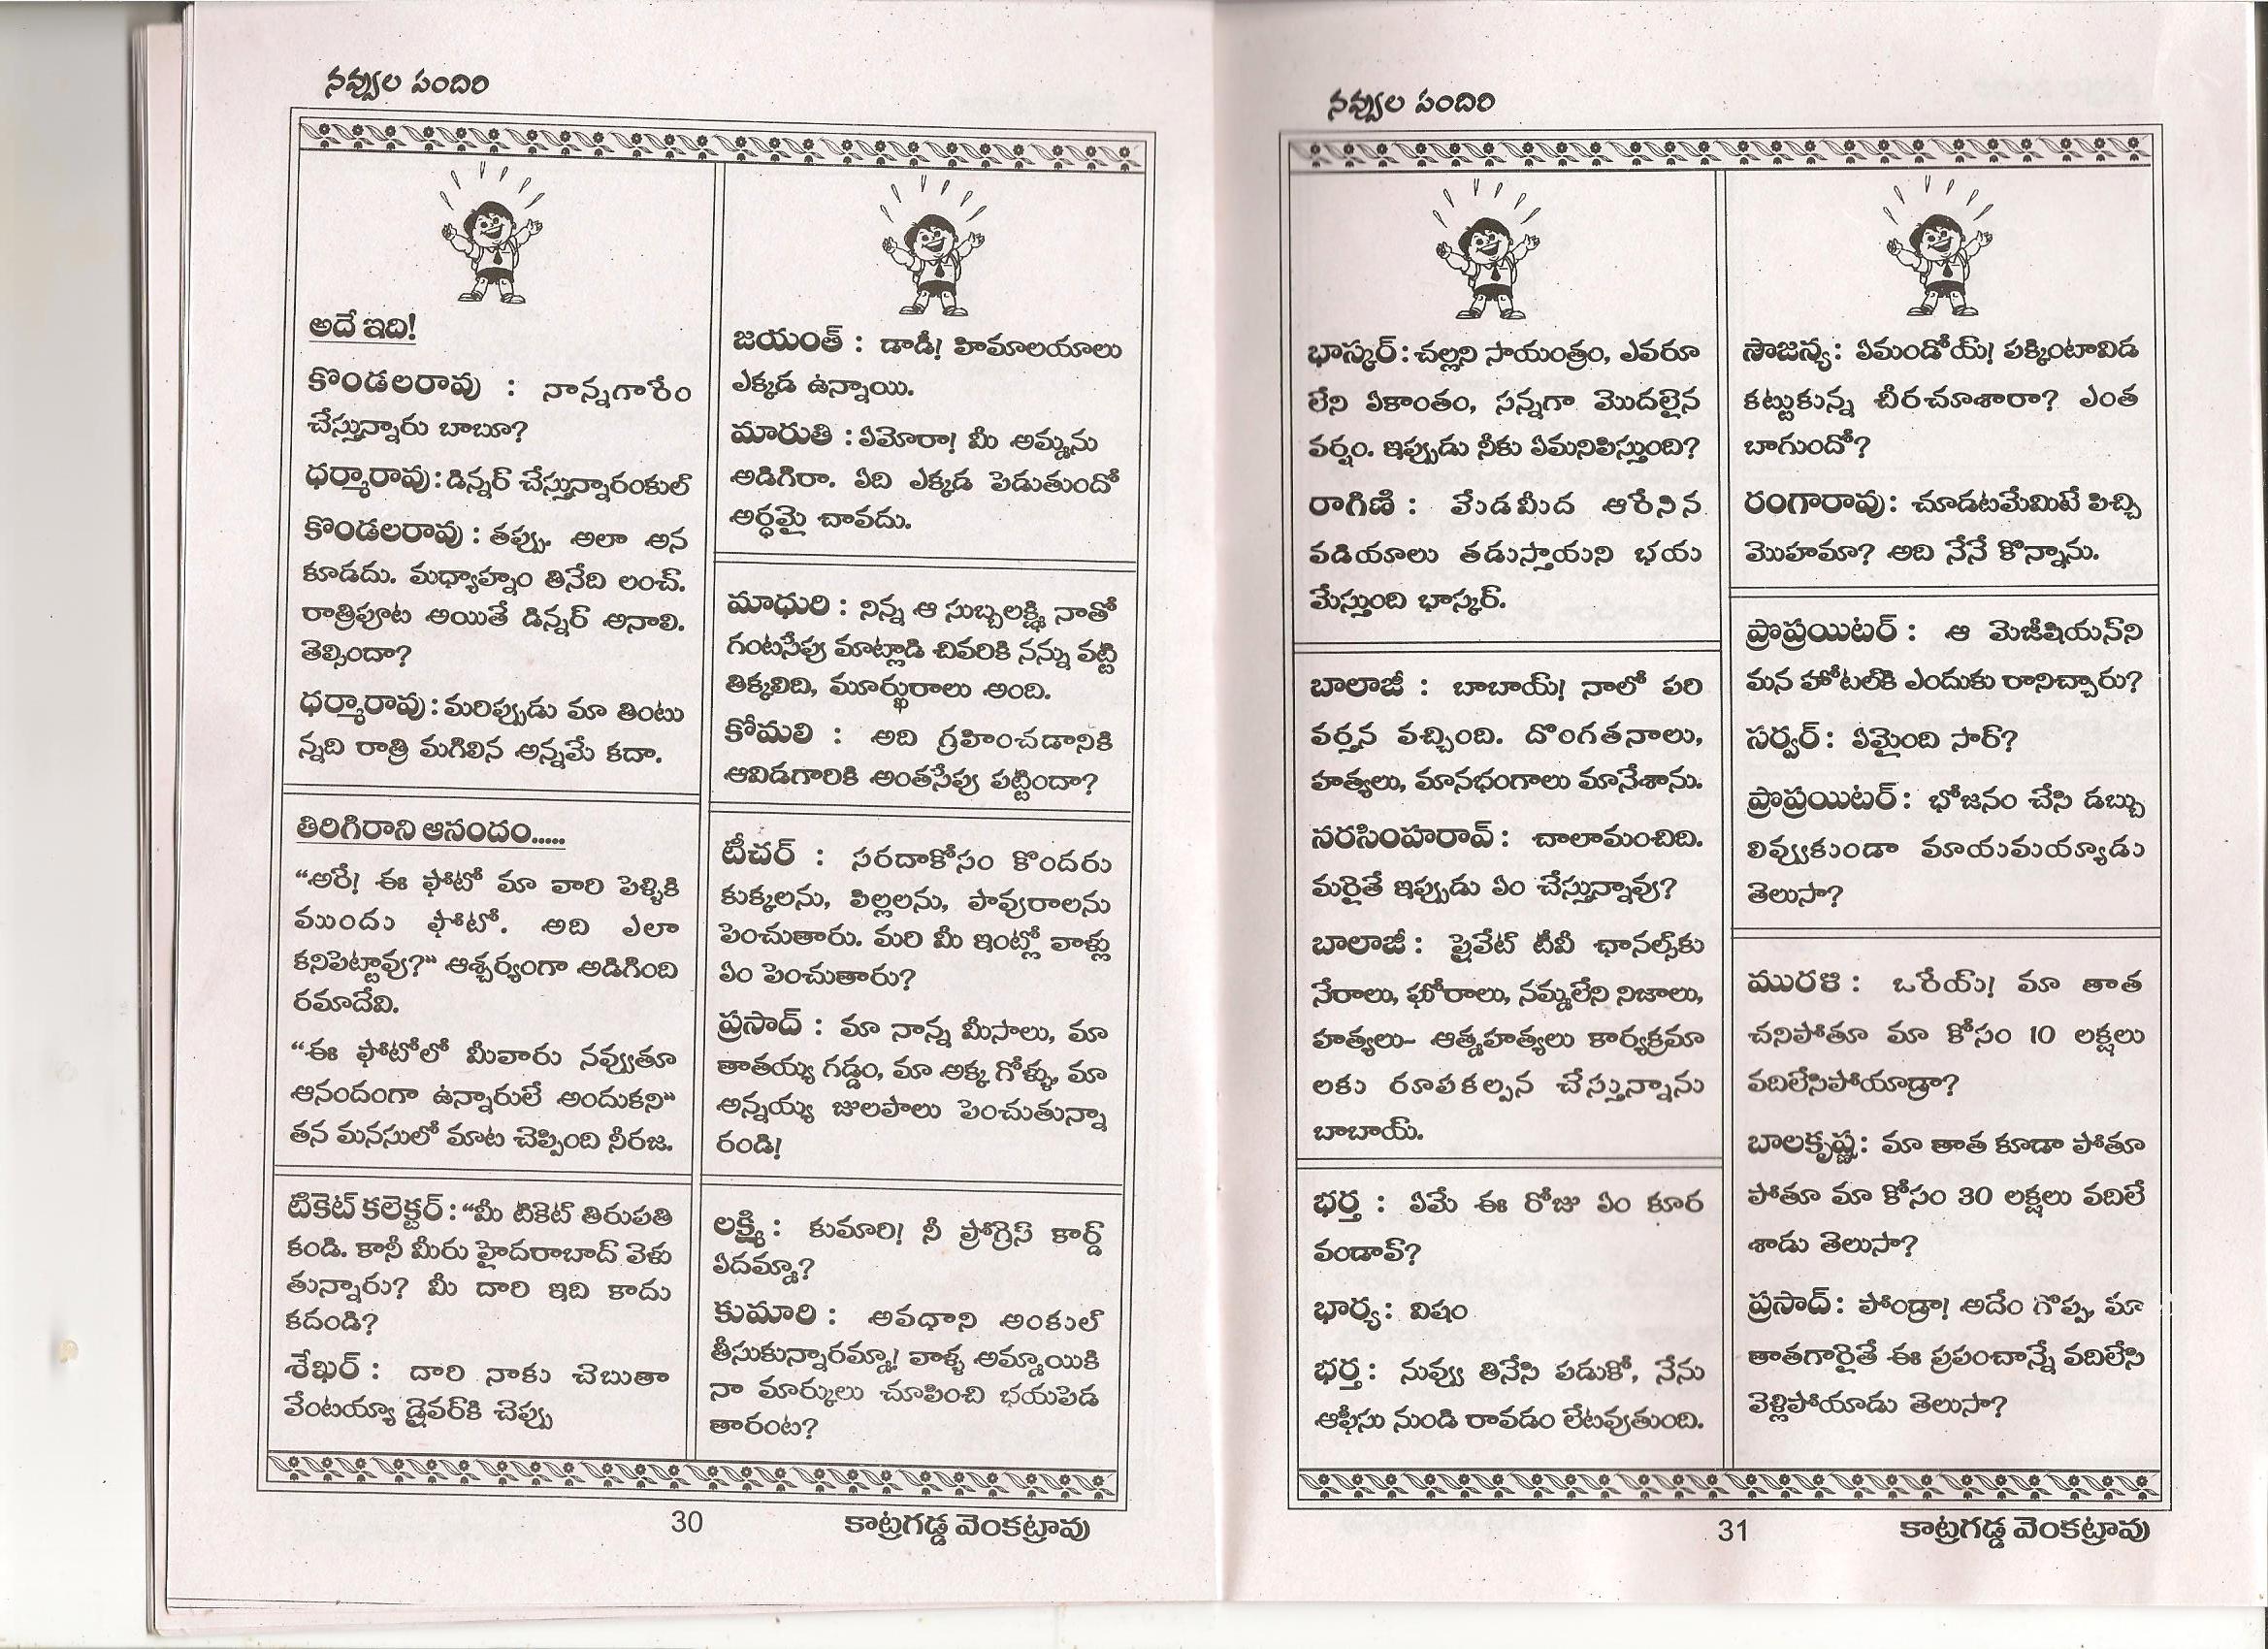 నవ్వుల పందిరి
అదే ఇది!
కొండలరావు : నాన్నగారేం
చేస్తున్నారు బాబూ?
ధర్మారావు : డిన్నర్ చేస్తున్నారంకుల్
కొండలరావు : తప్పు. అలా అన
కూడదు. మధ్యాహ్నం తినేది లంచ్.
రాత్రిపూట అయితే డిన్నర్ అనాలి.
తెల్సిందా?
ధర్మారావు : మరిప్పుడు మా తింటు
న్నది రాత్రి మగిలిన అన్నమే కదా.
తిరిగిరాని ఆనందం.....
“అరే! ఈ ఫోటో మా వారి పెళ్ళికి
ముందు ఫోటో. అది ఎలా
కనిపెట్టావు?” ఆశ్చర్యంగా అడిగింది
రమాదేవి.
“ఈ ఫోటోలో మీవారు నవ్వుతూ
ఆనందంగా ఉన్నారులే అందుకని”
తన మనసులో మాట చెప్పింది నీరజ.
టికెట్ కలెక్టర్ : “మీ టికెట్ తిరుపతి
కండి. కానీ మీరు హైదరాబాద్ వెళు
తున్నారు? మీ దారి ఇది కాదు
కదండి?
శేఖర్ : దారి నాకు చెబుతా
వేంటయ్యా డ్రైవర్‌కి చెప్పు
జయంత్ : డాడీ! హిమాలయాలు
ఎక్కడ ఉన్నాయి.
మారుతి : ఏమోరా! మీ అమ్మను
అడిగిరా. ఏది ఎక్కడ పెడుతుందో
అర్ధమై చావదు.
మాధురి : నిన్న ఆ సుబ్బలక్ష్మి నాతో
గంటసేపు మాట్లాడి చివరికి నన్ను వట్టి
తిక్కలిది, మూర్ఖురాలు అంది.
కోమలి : అది గ్రహించడానికి
ఆవిడగారికి అంతసేపు పట్టిందా?
టీచర్ : సరదాకోసం కొందరు
కుక్కలను, పిల్లలను, పావురాలను
పెంచుతారు. మరి మీ ఇంట్లో వాళ్లు
ఏం పెంచుతారు?
ప్రసాద్ : మా నాన్న మీసాలు, మా
తాతయ్య గడ్డం, మా అక్క గోళ్ళు, మా
అన్నయ్య జులపాలు పెంచుతున్నా
రండి!
లక్ష్మి : కుమారి! నీ ప్రోగ్రెస్ కార్డ్
ఏదమ్మా?
కుమారి : అవధాని అంకుల్
తీసుకున్నారమ్మా! వాళ్ళ అమ్మాయికి
నా మార్కులు చూపించి భయపెడ
తారంట?
30
కాట్రగడ్డ వెంకట్రావు
నవ్వుల పందిరి
భాస్కర్ : చల్లని సాయంత్రం, ఎవరూ
లేని ఏకాంతం, సన్నగా మొదలైన
వర్షం. ఇప్పుడు నీకు ఏమనిపిస్తుంది?
రాగిణి : మేడమీద ఆరేసిన
వడియాలు తడుస్తాయని భయ
మేస్తుంది భాస్కర్.
బాలాజీ : బాబాయ్! నాలో పరి
వర్తన వచ్చింది. దొంగతనాలు,
హత్యలు, మానభంగాలు మానేశాను.
నరసింహరావ్ : చాలామంచిది.
మరైతే ఇప్పుడు ఏం చేస్తున్నావు?
బాలాజీ : ప్రైవేట్ టీవీ ఛానల్స్‌కు
నేరాలు, ఘోరాలు, నమ్మలేని నిజాలు,
హత్యలు- ఆత్మహత్యలు కార్యక్రమా
లకు రూపకల్పన చేస్తున్నాను
బాబాయ్.
భర్త : ఏమే ఈ రోజు ఏం కూర
వండావ్?
భార్య : విషం
భర్త : నువ్వు తినేసి పడుకో, నేను
ఆఫీసు నుండి రావడం లేటవుతుంది.
సౌజన్య : ఏమండోయ్! పక్కింటావిడ
కట్టుకున్న చీరచూశారా? ఎంత
బాగుందో?
రంగారావు : చూడటమేమిటే పిచ్చి
మొహమా? అది నేనే కొన్నాను.
ప్రొప్రయిటర్ : ఆ మెజీషియన్‌ని
మన హోటల్‌కి ఎందుకు రానిచ్చారు?
సర్వర్ : ఏమైంది సార్?
ప్రొప్రయిటర్ : భోజనం చేసి డబ్బు
లివ్వకుండా మాయమయ్యాడు
తెలుసా?
మురళి : ఒరేయ్! మా తాత
చనిపోతూ మా కోసం 10 లక్షలు
వదిలేసిపోయాడ్రా?
బాలకృష్ణ : మా తాత కూడా పోతూ
పోతూ మా కోసం 30 లక్షలు వదిలే
శాడు తెలుసా?
ప్రసాద్ : పోండ్రా! అదేం గొప్ప, మా
తాతగారైతే ఈ ప్రపంచాన్నే వదిలేసి
వెళ్లిపోయాడు తెలుసా?
31
కాట్రగడ్డ వెంకట్రావు